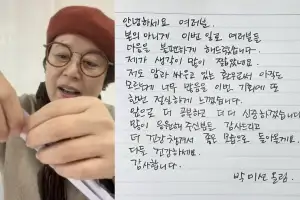 안녕하세요 여러분.
본의 아니게 이번 일로 여러분들
마음을 불편하게 해드렸습니다.
제가 생각이 많이 짧았네요.
저도 암과 싸우고 있는 환우로써 아직도
모르는게 너무 많음을 이번 기회에 또
한번 절실하게 느꼈습니다.
앞으로 더 공부하고 더 더 신중하겠습니다
많이 응원해 주신분들 감사드리고
더 건강 챙겨서 좋은 모습으로 돌아올게요.
다들 건강하세요.
감사합니다.
박미선 드림.